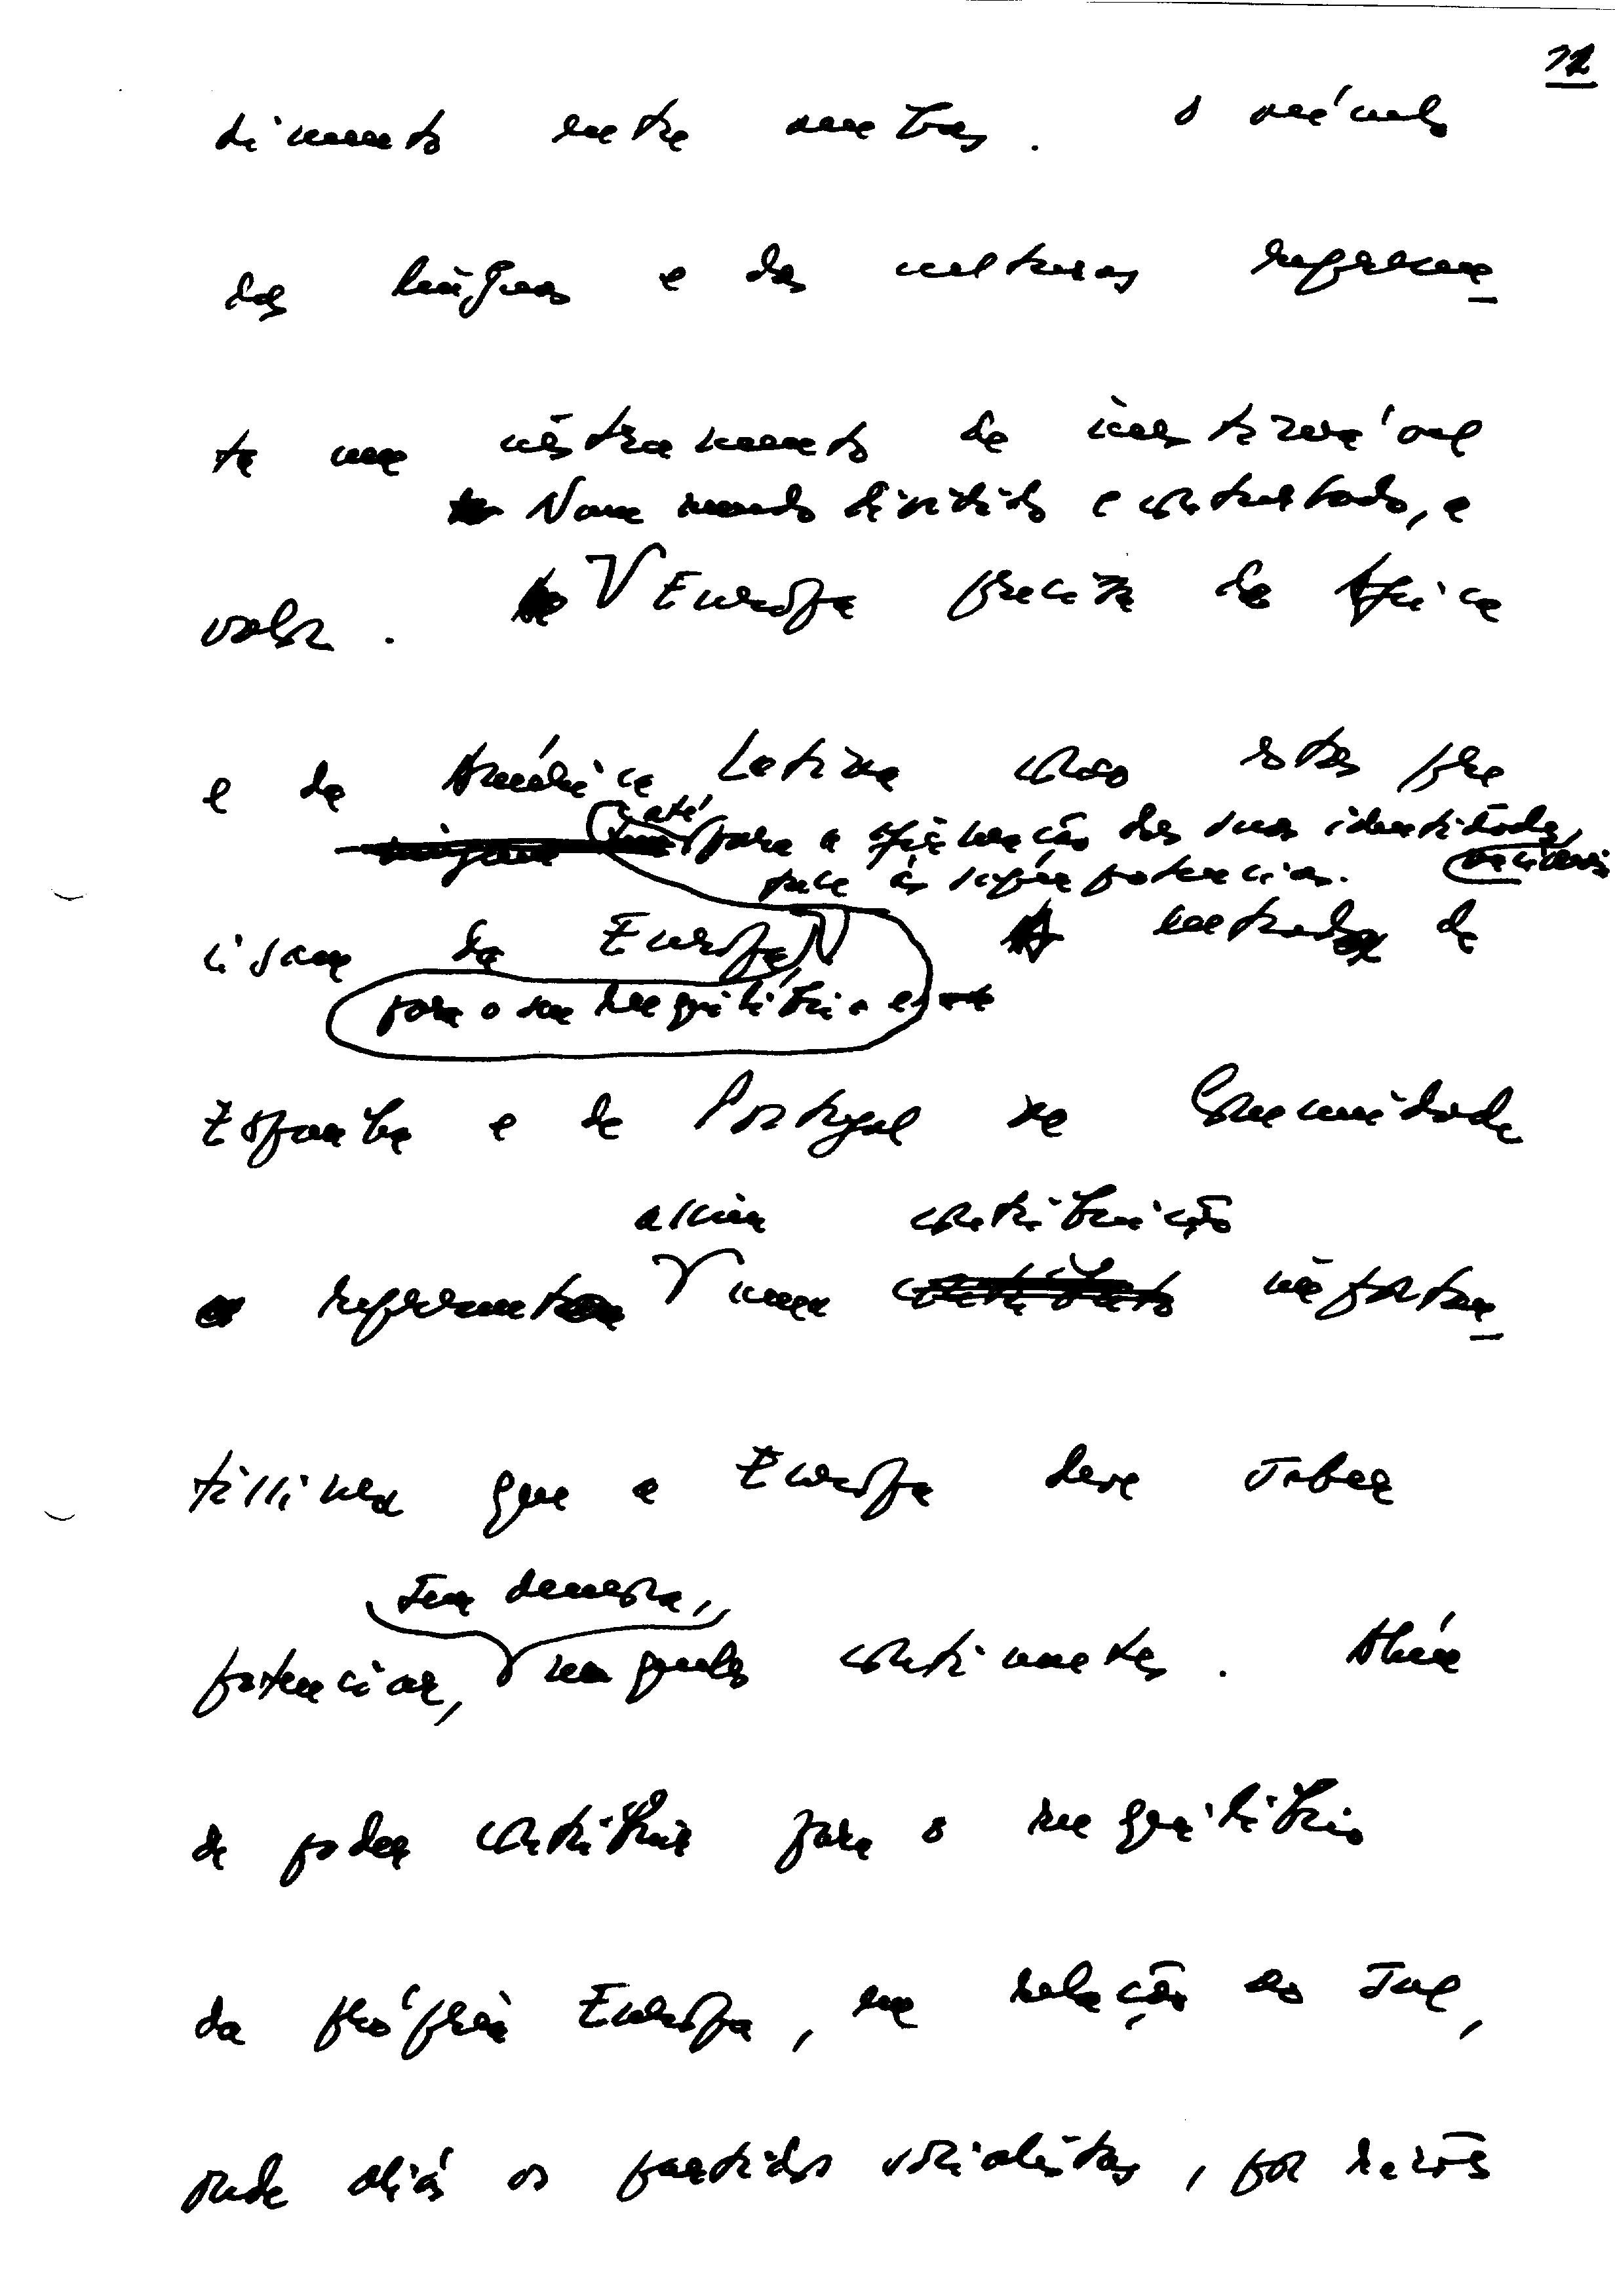 12
dimento entre ambas. O vínculo
das línguas e das culturas represen
ta um instrumento de inestimável
Num mundo dividido e conturbado, a
valor. Europa precisa da África
e da América Latina como estas pre
até para a afirmação das suas identidades,
face às superpotências. nacionais
cisam da Europa A entrada de
para o seu reequilíbrio e
Espanha e de Portugal na Comunidade
assim contribuição
representa uma importan
tíssima que a Europa deve saber
sem demora,
potenciar, nos quatro continentes. Além
de poder contribuir para o reequilíbrio
da própria Europa, em relação ao Sul,
onde aliás os partidos socialistas, por razões